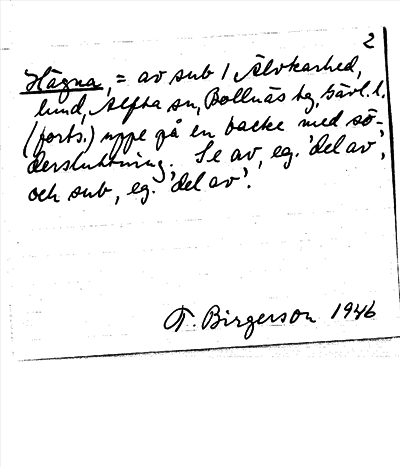 2
Hägna, = av sub 1 Älvkarhed,
lund, Alfta sn, Bollnäs tg, Gävl. l.
(forts.) uppe på en backe med sö-
dersluttning. Se av, eg. 'del av',
och sub, eg. 'del av'.
T. Birgerson 1946